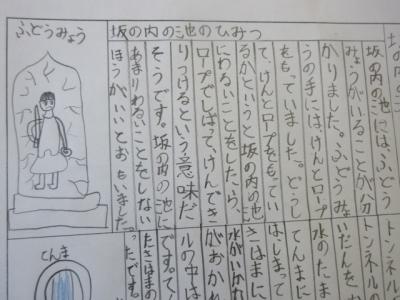 坂の内の池のひみつ
ふどうみょう
坂の内の池には、ふどう
みょうがいることが分
かりました。ふどうみょ
うの手には、けんとロープ
をもっていました。どうし
て、けんとロープをもってい
るかというと坂の内の池
にわるいことをしたら、
ロープでしばって、けんでき
りつけるという意味だ
そうです。坂の内の池に
あまりわるいことをしない
ほうがいいとおもいました。
トンネル
トンネル
水のたま
てんまに
はしまって
がおかれ
ルの中は
です。
ったです。
てんま